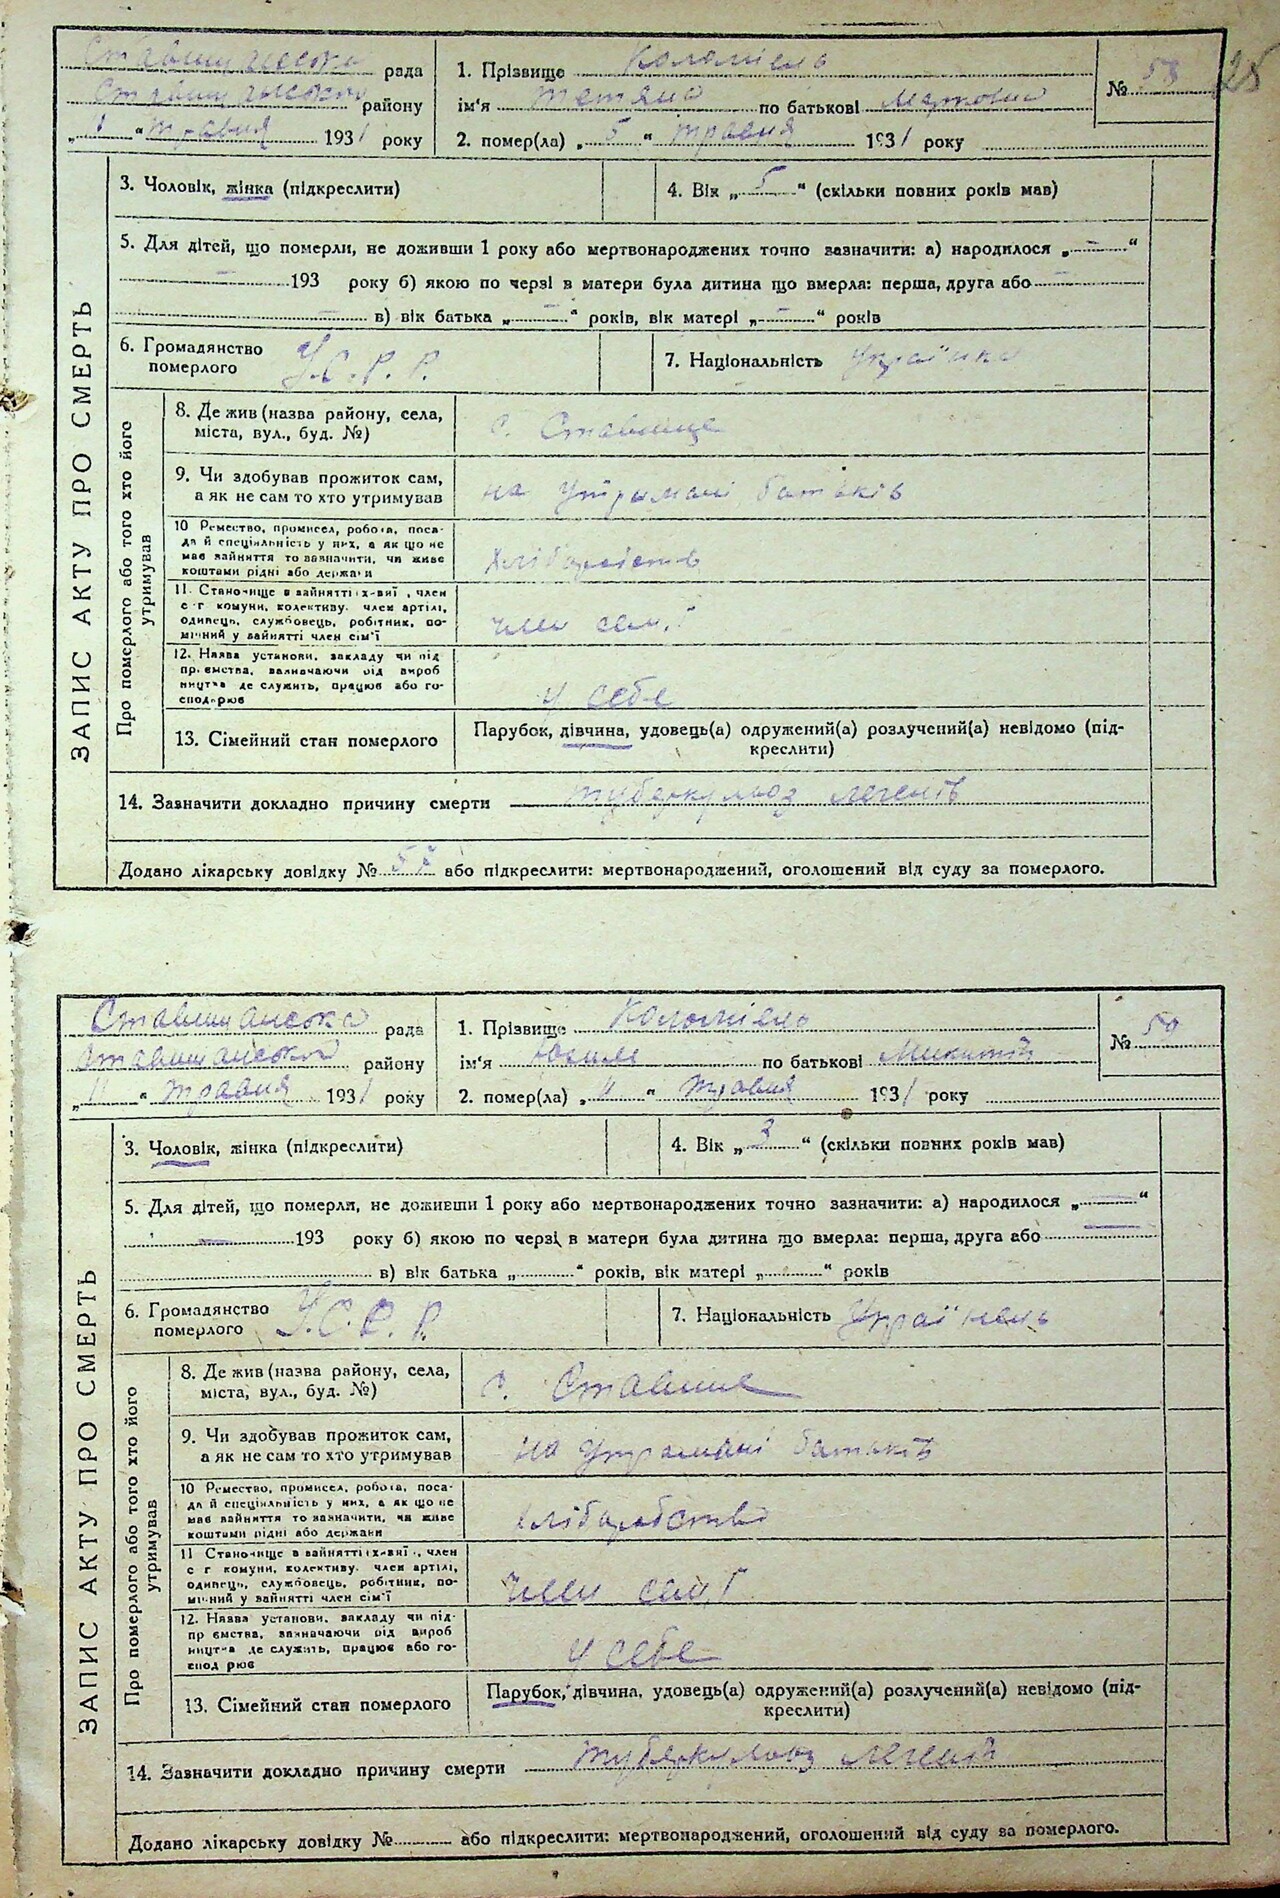 25
Ставищанська рада
Ставищанського району
„11“ травня 1931 року
1. Прізвище Коломієць
ім'я Тетяна по батькові
2. помер(ла) „5“ травня 1931 року
№ 58
ЗАПИС АКТУ ПРО СМЕРТЬ
3. Чоловік, жінка (підкреслити)
4. Вік „5“ (скільки повних років мав)
5. Для дітей, що померли, не доживши 1 року або мертвонароджених точно зазначити: а) народилося „—“
— 193 року б) якою по черзі в матери була дитина що вмерла: перша, друга або —
— в) вік батька „—“ років, вік матері „—“ років
6. Громадянство
померлого У.С.Р.Р.
7. Національність Українка
Про померлого або того хто його
утримував
8. Де жив (назва району, села,
міста, вул., буд. №)
с. Ставище
9. Чи здобував прожиток сам,
а як не сам то хто утримував
на утримані батьків
10 Ремество, промисел, робота, поса-
да й спеціяльність у них, а як що не
має зайняття то зазначити, чи живе
коштами рідні або держави
хліборобство
11. Становище в зайнятті х-вні, член
с-г комуни, колективу, член артілі,
одинець, службовець, робітник, по-
мічний у зайнятті член сім'ї
член сем'ї
12. Назва установи, закладу чи під
приємства, зазначаючи рід вироб
ництва де служить, працює або го-
сподарює
у себе
13. Сімейний стан померлого
Парубок, дівчина, удовець(а) одружений(а) розлучений(а) невідомо (під-
креслити)
14. Зазначити докладно причину смерти туберкульоз легенів
Додано лікарську довідку № або підкреслити: мертвонароджений, оголошений від суду за померлого.
Ставищанська рада
Ставищанського району
„11“ травня 1931 року
1. Прізвище Коломієць
ім'я по батькові Микитів
2. помер(ла) „11“ травня 1931 року
№ 59
ЗАПИС АКТУ ПРО СМЕРТЬ
3. Чоловік, жінка (підкреслити)
4. Вік „3“ (скільки повних років мав)
5. Для дітей, що померли, не доживши 1 року або мертвонароджених точно зазначити: а) народилося „—“
— 193 року б) якою по черзі в матери була дитина що вмерла: перша, друга або —
в) вік батька „“ років, вік матері „“ років
6. Громадянство
померлого У.С.Р.Р.
7. Національність Українець
Про померлого або того хто його
утримував
8. Де жив (назва району, села,
міста, вул., буд. №)
с. Ставище
9. Чи здобував прожиток сам,
а як не сам то хто утримував
на утримані батьків
10 Ремество, промисел, робота, поса-
да й спеціяльність у них, а як що не
має зайняття то зазначити, чи живе
коштами рідні або держави
хліборобство
11 Становище в зайнятті х-вні, член
с г комуни, колективу, член артілі,
одинець, службовець, робітник, по-
мічний у зайнятті член сім'ї
член сем'ї
12. Назва установи, закладу чи під-
приємства, зазначаючи рід вироб
ництва де служить, працює або го-
сподарює
у себе
13. Сімейний стан померлого
Парубок, дівчина, удовець(а) одружений(а) розлучений(а) невідомо (під-
креслити)
14. Зазначити докладно причину смерти туберкульоз легенів
Додано лікарську довідку № або підкреслити: мертвонароджений, оголошений від суду за померлого.